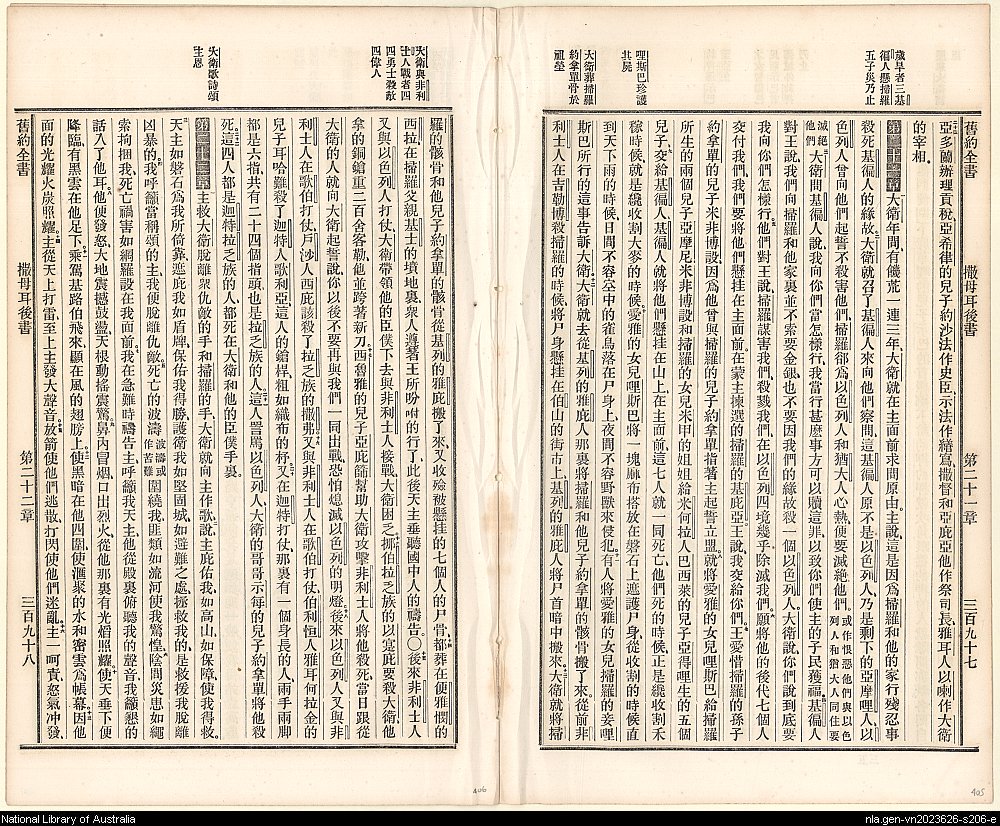 歲旱者三基
徧人懸掃羅
五子災乃止
哩斯巴珍護
其屍
大衛葬掃羅
約拿單骨於
祖塋
舊約全書 撒母耳後書 第二十一章 三百九十七
亞多蘭辦理貢稅、亞希律的兒子約沙法作史臣、示法作繕寫、撒督和亞庇亞他作祭司長、雅耳人以喇作大衛
的宰相。
第二十一章 大衛年間、有饑荒一連三年、大衛就在主面前求問原由。主說、這是因爲掃羅和他的家行殘忍事、
殺死基徧人的緣故。大衛就召了基徧人來、向他們察問、這基徧人原不是以色列人、乃是剩下的亞摩哩人、以
色列人曾向他們起誓不殺害他們、掃羅卻爲以色列人和猶大人心熱、便要滅絕他們、或作恨惡他們與以色列人和猶大人同住要
滅絕他們 大衛問基徧人說、我向你們當怎樣行、我當行甚麽事方可以贖這罪、以致你們使主的子民獲福。基徧人
對王說、我們向掃羅和他家裏、並不索要金銀、也不要因我們的緣故殺一個以色列人、大衛說、你們說到底要
我向你們怎樣行。他們對王說、掃羅謀害我們、殺戮我們、在以色列四境幾乎除滅我們。願將他的後代七個人
交付我們、我們要將他們懸挂在主面前、在蒙主揀選的掃羅的基庇亞。王說、我交給你們。王愛惜掃羅的孫子
約拿單的兒子米非博設、因爲他曾與掃羅的兒子約拿單指著主起誓立盟。就將愛雅的女兒哩斯巴給掃羅
所生的兩個兒子亞摩尼米非博設、和掃羅的女兒米甲的姐姐給米何拉人巴西萊的兒子亞得哩生的五個
兒子、交給基徧人。基徧人就將他們懸挂在山上、在主面前、這七人就一同死亡、他們死的時候、正是纔收割禾
稼時候、就是纔收割大麥的時候。愛雅的女兒哩斯巴將一塊麻布搭放在磐石上遮護尸身、從收割的時候、直
到天下雨的時候、日間不容空中的雀鳥落在尸身上、夜間不容野獸來侵犯。有人將愛雅的女兒掃羅的妾哩
斯巴所行的這事告訴大衛。大衛就去從基列的雅庇人那裏、將掃羅和他兒子約拿單的骸骨搬了來、從前非
利士人在吉勒博殺掃羅的時候、將尸身懸挂在伯山的街市上、基列的雅庇人將尸首暗中搬來。大衛就將掃
大衛與非利
士人戰者四
四勇士殺敵
四偉人
大衛歌詩頌
主恩
羅的骸骨和他兒子約拿單的骸骨、從基列的雅庇搬了來、又收殮被懸挂的七個人的尸骨。都葬在便雅憫的
西拉、在掃羅父親基士的墳地裏、衆人遵著王所吩咐的行了、此後天主垂聽國中人的禱告。〇後來非利士人
又與以色列人打仗、大衛帶領他的臣僕下去與非利士人接戰、大衛困乏。挪伯拉乏族的以寔庇要殺大衛、他
拿的銅鎗重二百舍客勒、他並跨著新刀。西魯雅的兒子亞庇篩幫助大衛、攻擊非利士人、將他殺死、當日跟從
大衛的人、就向大衛起誓說、你以後不要再與我們一同出戰、恐怕熄滅以色列的明燈。後來以色列人又與非
利士人在歌伯打仗、戶沙人西庇該殺了拉乏族的撒弗。又與非利士人在歌伯打仗、伯利恒人雅耳何拉金的
兒子耳哈難、殺了迦特人歌利亞、這人的鎗桿粗如織布的杼。又在迦特打仗、那裏有一個身長的人、兩手兩脚
都是六指、共有二十四個指頭、也是拉乏族的人。這人詈駡以色列人、大衛的哥哥示每的兒子約拿單將他殺
死。這四人都是迦特拉乏族的人、都死在大衛和他的臣僕手裏。
第二十二章 主救大衛脫離衆仇敵的手和掃羅的手、大衛就向主作歌說、主庇佑我、如高山、如保障、使我得救。
天主如磐石爲我所倚靠、遮庇我如盾牌、保佑我得勝、護衛我如堅固城、如避難之處、拯救我的、是救援我脫離
凶暴的。我呼籲當稱頌的主、我便脫離仇敵。死亡的波濤波濤或作苦難圍繞我、匪類如流河使我驚惶。陰間災患如繩
索拘捆我、死亡禍害如網羅設在我面前。我在急難時禱告主、呼籲我天主、他從殿裏俯聽我的聲音、我籲懇的
話入了他耳。他便發怒、大地震撼鼓盪、天根動搖震驚。鼻內冒烟、口出烈火、從他那裏有光焰照耀。使天垂下、便
降臨、有黑雲在他足下。乘駕基路伯飛來、顯在風的翅膀上。使黑暗在他四圍、使滙聚的水和密雲爲帳幕。因他
面的光耀、火炭照耀。主從天上打雷、至上主發大聲音。放箭使他們逃散、打閃使他們迷亂。主一呵責、怒氣冲發、
舊約全書 撒母耳後書 第二十二章 三百九十八
406
405
National Library of Australia
nla.gen-vn2023626-s206-e